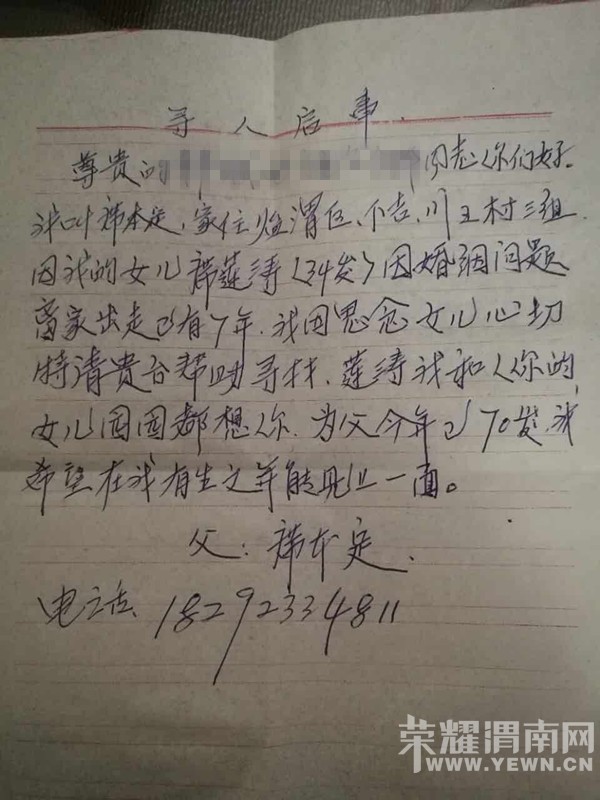 寻人启事.
尊贵的 同志你们好。
我叫韩本定,家住临渭区、下吉、川王村三组.
因我的女儿韩莲涛(34岁)因婚姻问题
离家出走已有7年.我因思念女儿心切
特请贵台帮助寻找.莲涛我和你的
女儿园园都想你.为父今年已70岁,我
希望在我有生之年能见上一面。
父:韩本定.
电话、18292334811
荣耀渭南网
WWW.YEWN.CN